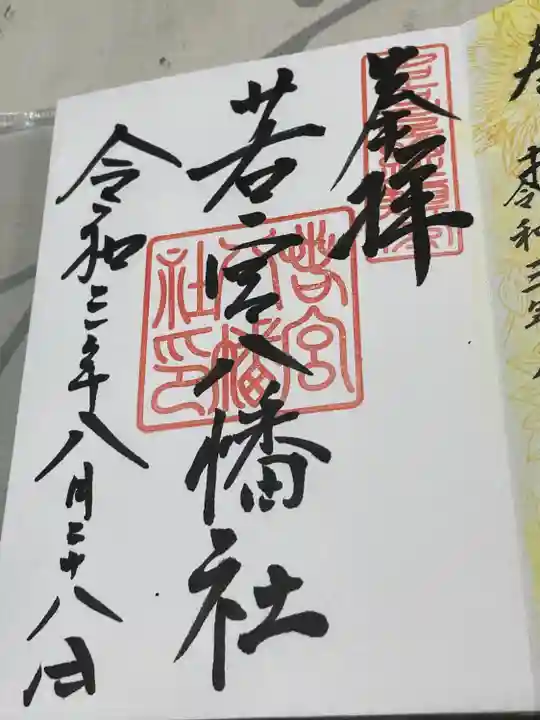 奉拝
若宮八幡社
若宮八幡社印
令和三年八月二十八日
令和三年